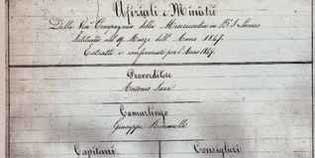 Ufiziali e Ministri
Della Pia Compagnia della Misericordia in
Istituita nel Marzo dell' Anno 1847.
Estratti e confermati per l'Anno 1857.
Provveditore
Antonio
Camarlingo
Giuseppe
Capitani Consiglieri